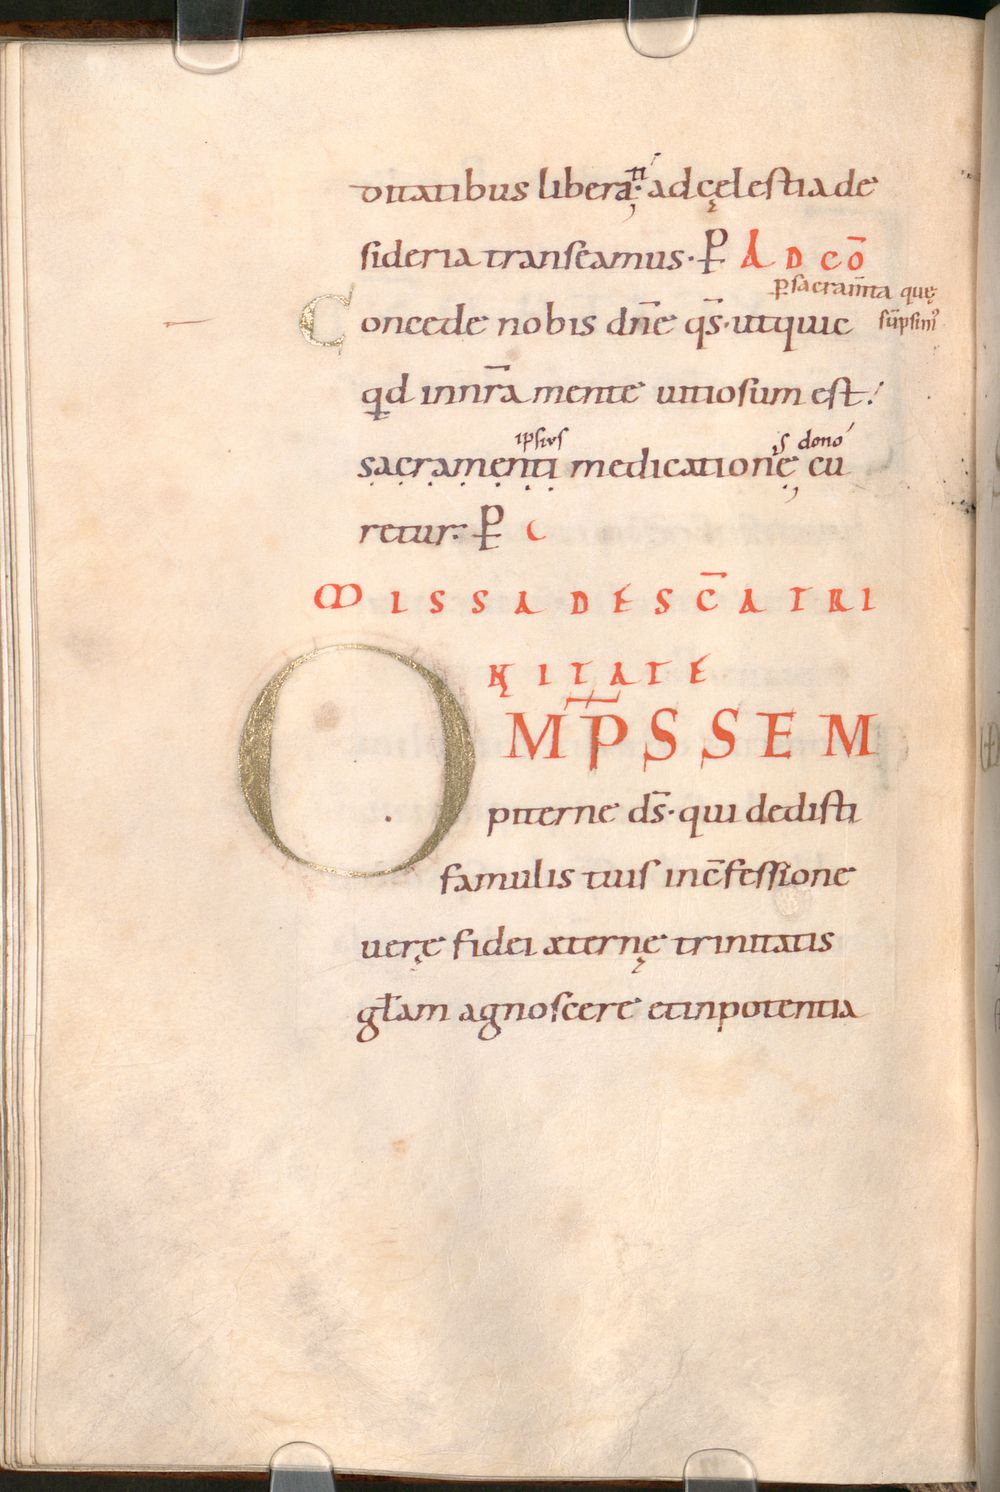 ditatibus libera ti ad cęlestia de
sideria transeamus· P AD Cō
p sacram̄ta quę
Concede nobis dn̄e qs̄· ut quic sūpsim'
qd in nr̄a mente uitiosum est:
ipsius s dono
sacramenti medicationę cu
retur: P C
MISSA DE SC̄A TRI
NITATE
OMP̄S SEM
piterne ds̄· qui dedisti
famulis tuis in c̄fessione
uerę fidei æternę trinitatis
gl̄am agnoscere et in potentia